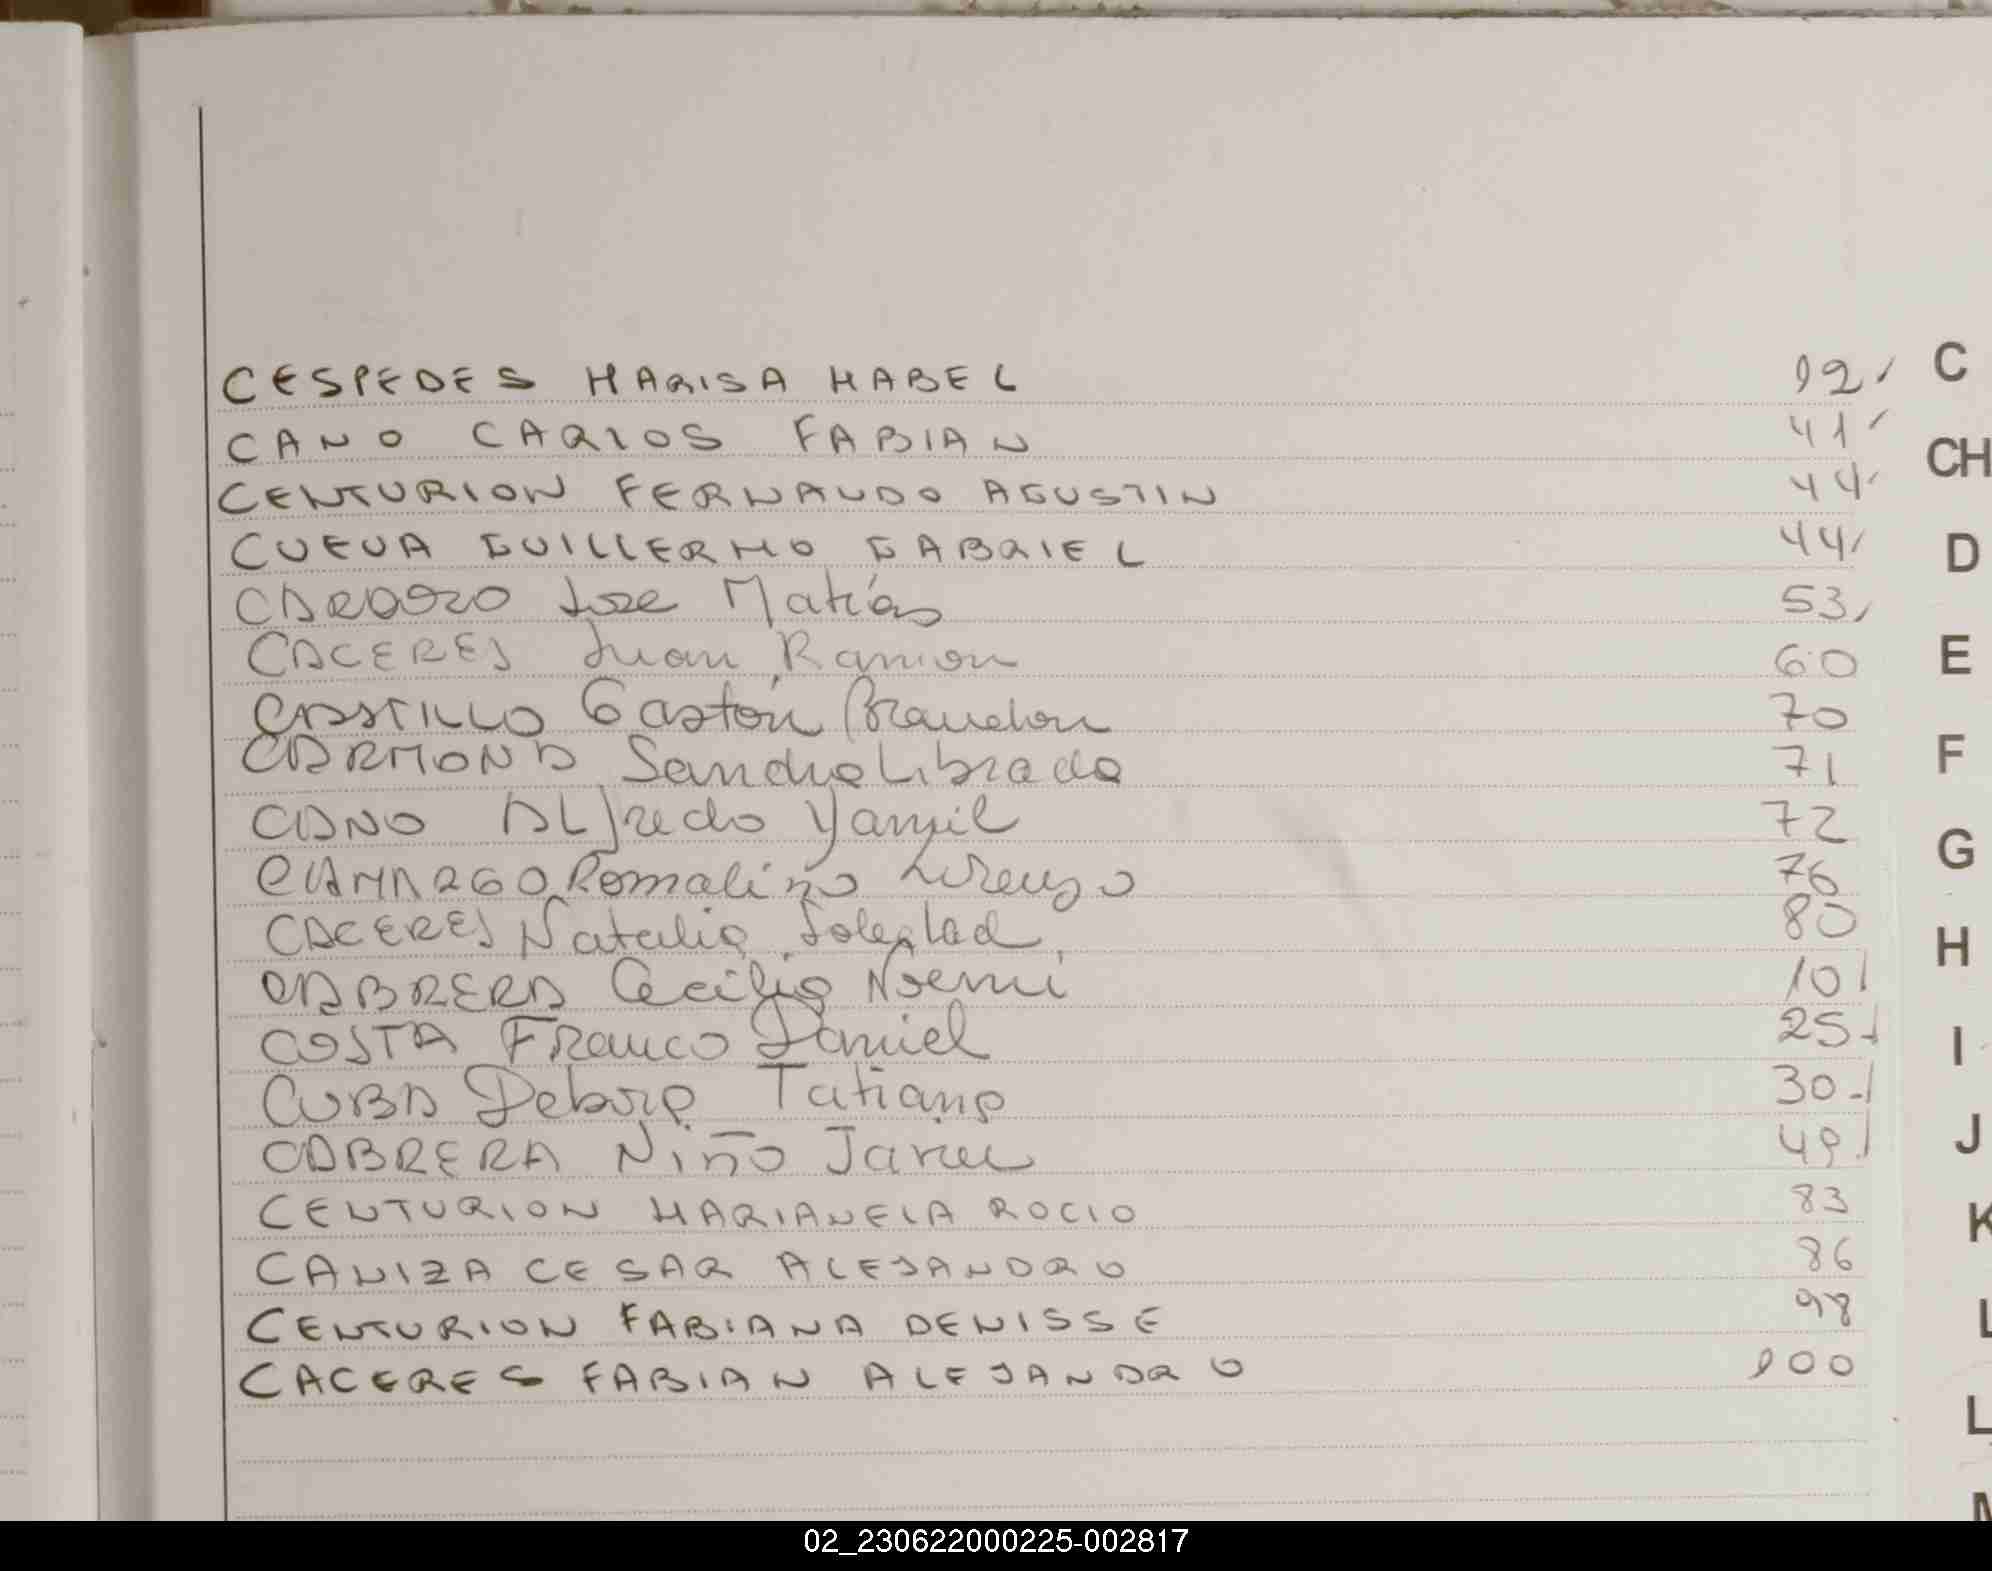 CESPEDES MARISA MABEL 12 C
CANO CARLOS FABIAN 41
CH
CENTURION FERNANDO AGUSTIN 44
CUEVA GUILLERMO GABRIEL 44 D
CARDOZO Jose Matías 53
CACERES Juan Ramon 60 E
CASTILLO Gastón Brandon 70
CARMONA Sandra Librada 71 F
CANO ALfredo Yamil 72
CAMARGO Romalizio Lorenzo 76 G
CACERES Natalia Soledad 80
CABRERA Cecilia Noemi 10 H
COSTA Franco Daniel 25 I
CUBA Debora Tatiana 30
CABRERA Niño Javier 49 J
CENTURION MARIANELA ROCIO 83 K
CANIZA CESAR ALEJANDRO 86
CENTURION FABIANA DENISSE 98 L
CACERES FABIAN ALEJANDRO 100
02_230622000225-002817